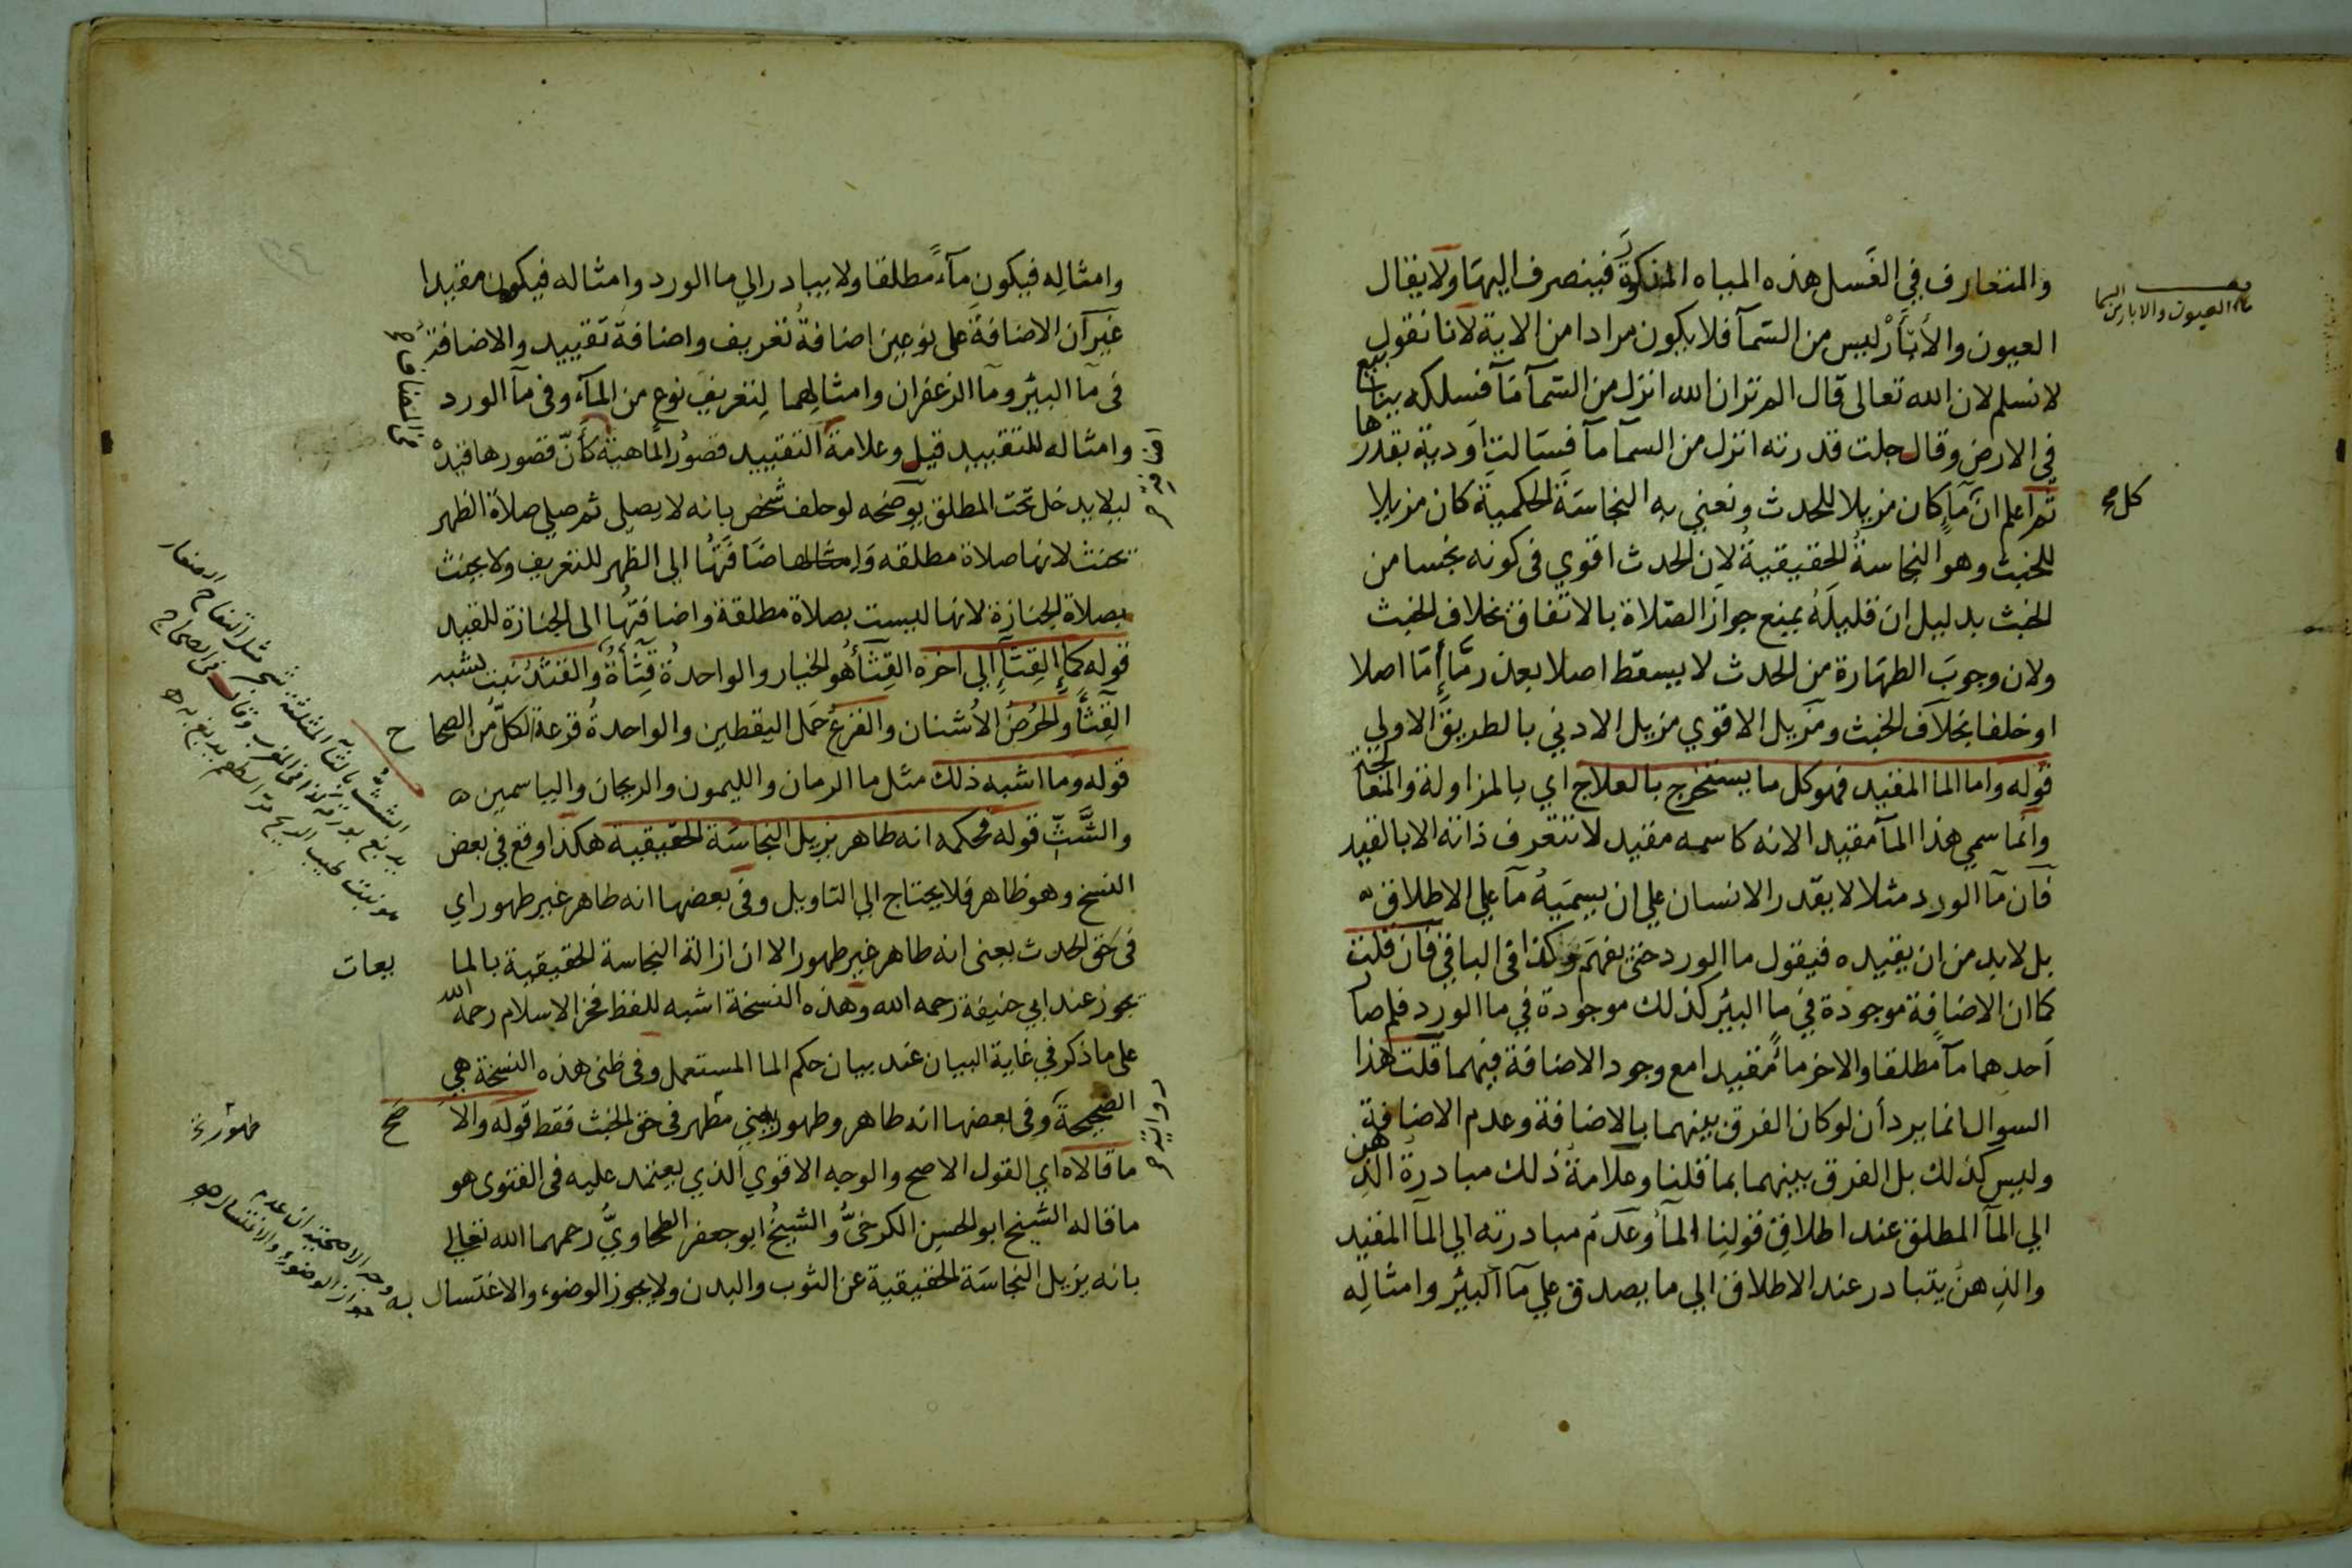 والمتعارف في الغسل هذه المياه المذكورة فينصرف اليها ولا يقال
العيون والأبآر ليس من السمآ فلا يكون مرادا من الاية لانا نقول
لا نسلم لان الله تعالى قال الم تر ان الله انزل من السمآ مآ فسلكه ينابيع
في الارض وقال جلت قدرته انزل من السمآ مآ فسالت اودية بقدرها
ثم اعلم ان مآ كان مزيلا للحدث ونعني به النجاسة الحكمية كان مزيلا
للخبث وهو النجاسة الحقيقية لان الحدث اقوي في كونه نجسا من
الخبث بدليل ان قليله يمنع جواز الصلاة بالاتفاق بخلاف الخبث
ولان وجوب الطهارة من الحدث لا يسقط اصلا بعذر ما إما اصلا
او خلفا بخلاف الخبث ومزيل الاقوي مزيل الادني بالطريق الاولي
قوله واما الما المقيد فهو كل ما يستخرج بالعلاج اي بالمزاولة والمعالجة
وانما سمي هذا المآ مقيدا لانه كاسمه مقيد لا تتعرف ذاته الا بالقيد
فان مآ الورد مثلا لا يقدر الانسان علي ان يسميه مآ علي الاطلاق
بل لابد من ان يقيده فيقول ما الورد حتى يفهم وكذا في الباقي فان قلت
كما ان الاضافة موجودة في ما البئر كذلك موجودة في ما الورد فلم صار
احدهما مآ مطلقا والاخر مآ مقيدا مع وجود الاضافة فيهما قلت هذا
السوال انما يرد أن لو كان الفرق بينهما بالاضافة وعدم الاضافة
وليس كذلك بل الفرق بينهما بما قلنا وعلامة ذلك مبادرة الذهن
الي المآ المطلق عند اطلاق قولنا المآ وعدم مبادرته الي المآ المقيد
والذهن يتبادر عند الاطلاق الي ما يصدق علي مآ البئر وامثاله
ماء العيون والابار من السما
كل صح
وامثاله فيكون مآءً مطلقا ولا يبادر الي ما الورد وامثاله فيكون مقيدا
غير ان الاضافة على نوعين اضافة تعريف واضافة تقييد والاضافة
في مآ البئر ومآ الزعفران وامثالهما لتعريف نوع من المآء وفي مآ الورد
وامثاله للتقييد قيل وعلامة التقييد قصور الماهية كأنّ قصورها قيده
ليلا يدخل تحت المطلق يوضحه لو حلف شخص بانه لا يصلي ثم صلي صلاة الظهر
يحنث لانها صلاة مطلقه واضافتها الى الظهر للتعريف ولا يحنث
بصلاة الجنازة لانها ليست بصلاة مطلقة واضافتها الى الجنازة للتقييد
قوله كمآ القثآ إلي اخره القثآ هو الخيار والواحدة قثأة والقثد نبت يشبه
القثأ والحرض الأشنان والقرع حمل اليقطين والواحدة قرعة الكل من الصحاح
قوله وما اشبه ذلك مثل ما الرمان والليمون والريحان والياسمين
والشّثّ قوله فحكمه انه طاهر يزيل النجاسة الحقيقية هكذا وقع في بعض
النسخ وهو ظاهر فلا يحتاج الي التاويل وفي بعضها انه طاهر غير طهور اي
في حق الحدث يعني انه طاهر غير طهور الا ان ازالة النجاسة الحقيقية بالمايعات
يجوز عند ابي حنيفة رحمه الله وهذه النسخة اشبه للفظ فخر الاسلام رحمه الله
على ما ذكر في غاية البيان عند بيان حكم الما المستعمل وفي ظني هذه النسخة هي
الصحيحة وفي بعضها انه طاهر وطهور يعني مطهر في حق الخبث فقط قوله والاصح
ما قالاه اي القول الاصح والوجه الاقوي الذي يعتمد عليه في الفتوى هو
ما قاله الشيخ ابو الحسن الكرخيّ والشيخ ابو جعفر الطحاويّ رحمهما الله تعالي
بانه يزيل النجاسة الحقيقية عن الثوب والبدن ولا يجوز الوضوء والاغتسال به
الشث بالثآ المثلثة شجر مثل التفاح الصغار
يدبغ بورقه
هو نبت طيب الريح مر الطعم يدبغ به
طهور
وجه الاصحية ان عدم
جواز الوضوء والاغتسال به